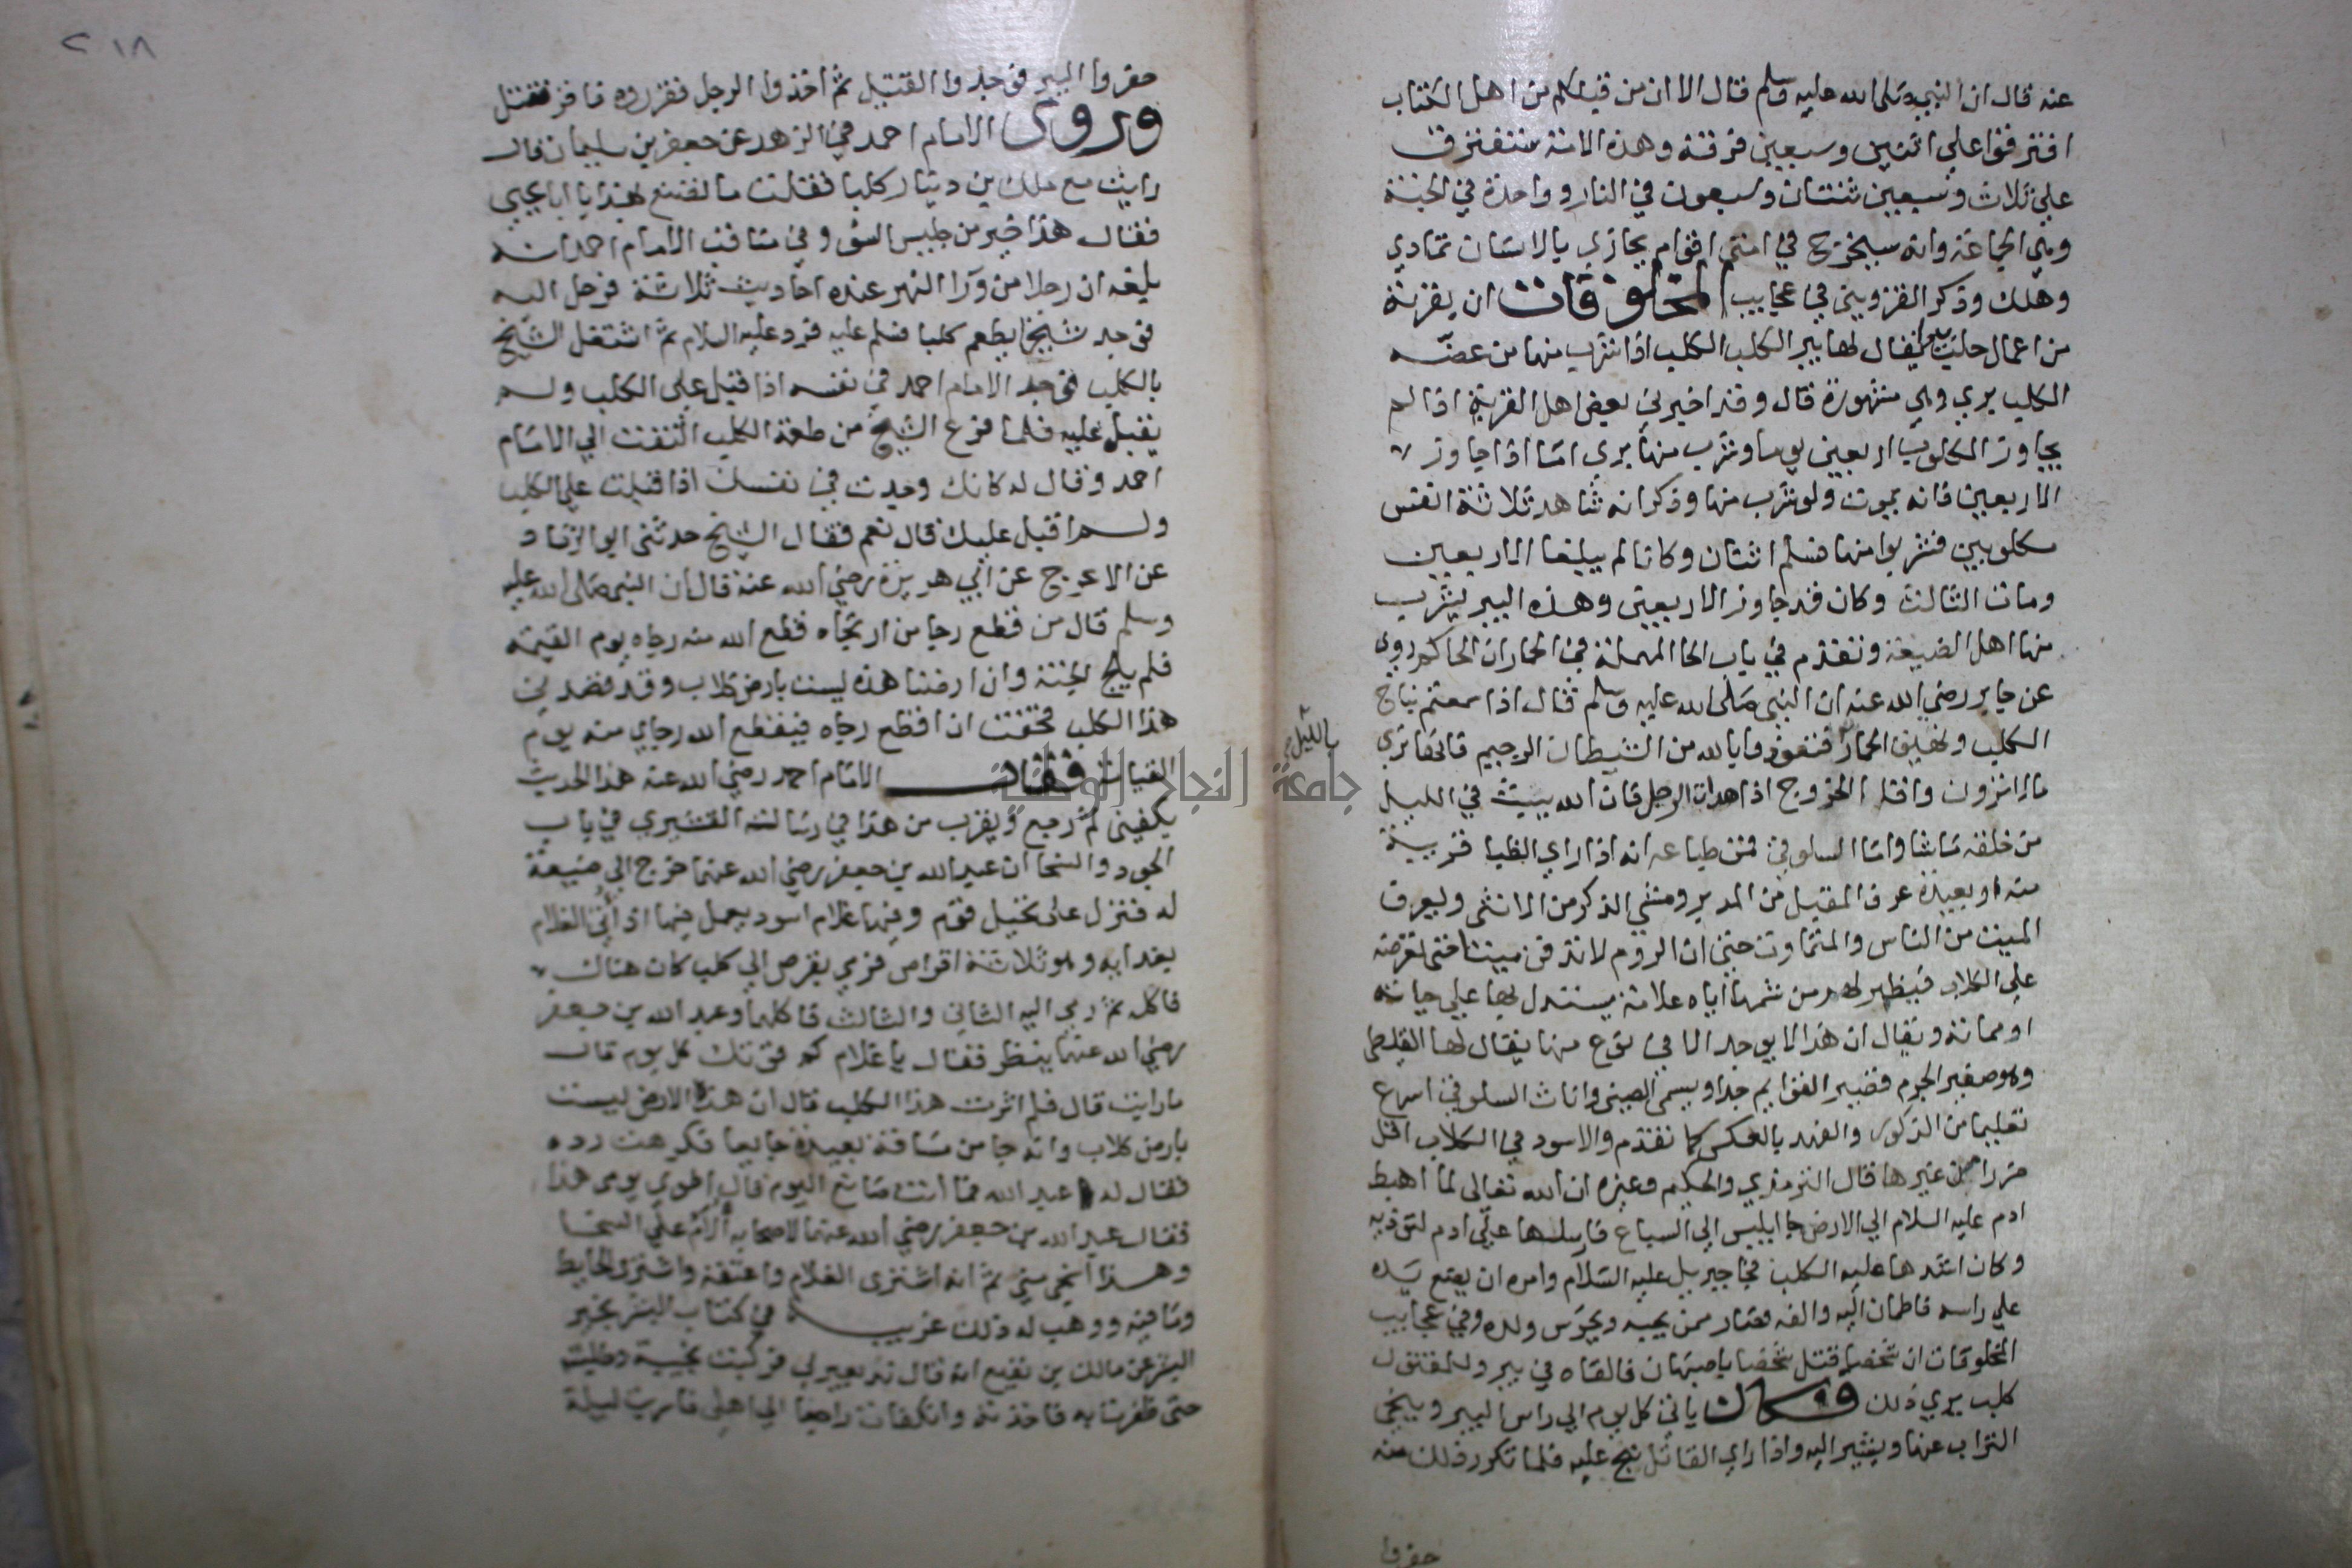 عنه قال ان النبي صلى الله عليه وسلم قال الا ان من قبلكم من اهل الكتاب
افترقوا علي اثنتين وسبعين فرقة وهذه الامة ستفترق
علي ثلاث وسبعين ثنتان وسبعون في النار وواحدة في الجنة
وهي الجماعة وانه سيخرج في امتي اقوام يجازي بالانسان تمادي
وهلك وذكر القزويني في عجايب المخلوقات ان بقرية
من اعمال حلب يقال لها بير الكلب الكلب اذا شرب منها من عضه
الكلب بري وهي مشهورة قال وقد اخبرني بعض اهل القرية اذا لم
يجاوز المكلوب اربعين يوما وشرب منها بري اما اذا جاوز
الاربعين فانه يموت ولو شرب منها وذكر انه شاهد ثلاثة انفس
مكلوبين فشربوا منها فسلم اثنان وكانا لم يبلغا الاربعين
ومات الثالث وكان قد جاوز الاربعين وهذه البير يشرب
منها اهل الضيعة وتقدم في باب الحا المهملة في الحمار ان الحاكم روي
عن جابر رضي الله عنه ان النبي صلى الله عليه وسلم قال اذا سمعتم نباح
الكلب ونهيق الحمار فتعوذوا بالله من الشيطان الرجيم فانها تري
بالليل
ما لا ترون واقلوا الخروج اذا هدات الرجل فان الله يبث في الليل
من خلقه ماشا واما السلوقي فمن طباعه انه اذا راي الظبا قريبة
منه او بعيدة عرف المقبل من المدبر ومشي الذكر من الانثى ويعرف
الميت من الناس والمتماوت حتي ان الروم لا تدفن ميتا حتى تعرضه
علي الكلاب فيظهر لهم من شمها اياه علامة يستدل بها علي حياته
او مماته ويقال ان هذا لا يوجد الا في نوع منها يقال لها القلطي
وهو صغير الجرم قصير القوايم جدا ويسمى الصيني واناث السلوقي اسرع
تعليما من الذكور والفهد بالعكس كما تقدم والاسود في الكلاب اقل
ضررا من غيرها قال الترمذي والحكيم وغيره ان الله تعالى لما اهبط
ادم عليه السلام الي الارض جا ابليس الي السباع فارسلها علي ادم لتوذيه
وكان اشدها عليه الكلب فجا جبريل عليه السلام وامره ان يضع يده
علي راسه فاطمان اليه والفه فصار ممن يحبه ويحرس ولده وفي عجايب
المخلوقات ان شخصا قتل شخصا باصبهان فالقاه في بير وللمقتول
كلب يري ذلك فكان ياتي كل يوم الي راس البير وينحي
التراب عنها ويشير اليه واذا راي القاتل نبح عليه فلما تكرر ذلك منه
حفروا
٢١٨
حفروا البير فوجدوا القتيل ثم اخذوا الرجل فقرروه فاقر فقتل
وروى الامام احمد في الزهد عن جعفر بن سليمان قال
رايت مع ملك بن دينار كلبا فقلت ما تصنع بهذا يا ابا يحيي
فقال هذا خير من جليس السو وفي مناقب الامام احمد انه
بلغه ان رجلا من ورا النهر عنده احاديث ثلاثة فرحل اليه
فوجد شيخا يطعم كلبا فسلم عليه فرد عليه السلام ثم اشتغل الشيخ
بالكلب فوجد الامام احمد في نفسه اذا قبل على الكلب ولم
يقبل عليه فلما فرغ الشيخ من طعمة الكلب التفت الي الامام
احمد وقال له كانك وجدت في نفسك اذا قبلت علي الكلب
ولم اقبل عليك قال نعم فقال الشيخ حدثني ابو الزناد
عن الاعرج عن ابي هريرة رضي الله عنه قال ان النبي صلى الله عليه
وسلم قال من قطع رجا من ارتجاه قطع الله منه رجاه يوم القيمة
فلم يلج الجنة وان ارضنا هذه ليست بارض كلاب وقد قصدني
هذا الكلب فخفت ان اقطع رجاه فيقطع الله رجاي منه يوم
القيامة فقال الامام احمد رضي الله عنه هذا الحديث
يكفيني ثم رجع ويقرب من هذا في رسالة القشيري في باب
الجود والسخا ان عبد الله بن جعفر رضي الله عنهما خرج الي ضيعة
له فنزل على نخيل قوم وفيها غلام اسود يعمل فيها اذ أتي الغلام
بغدايه وهو ثلاثة اقراص فرمي بقرص الي كلب كان هناك
فاكله ثم رمي اليه الثاني والثالث فاكلهما وعبد الله بن جعفر
رضي الله عنهما ينظر فقال يا غلام كم قوتك كل يوم قال
ما رايت قال فلم اثرت هذا الكلب قال ان هذه الارض ليست
بارض كلاب وانه جا من مسافة بعيدة جايعا فكرهت رده
فقال له عبد الله فما انت صانع اليوم قال اطوي يومي هذا
فقال عبد الله بن جعفر رضي الله عنهما لاصحابه ألام علي السخا
وهذا اسخى مني ثم انه اشترى الغلام واعتقه واشترى الحايط
وما فيه ووهب له ذلك غريبة في كتاب البشر بخير
البشر عن مالك بن نفيع انه قال ند بعير لي فركبت نجيبة وطلبته
حتى ظفرت به فاخذته وانكفات راجعا الي اهلي فاسريت ليلة
جامعة النجاح الوطنية